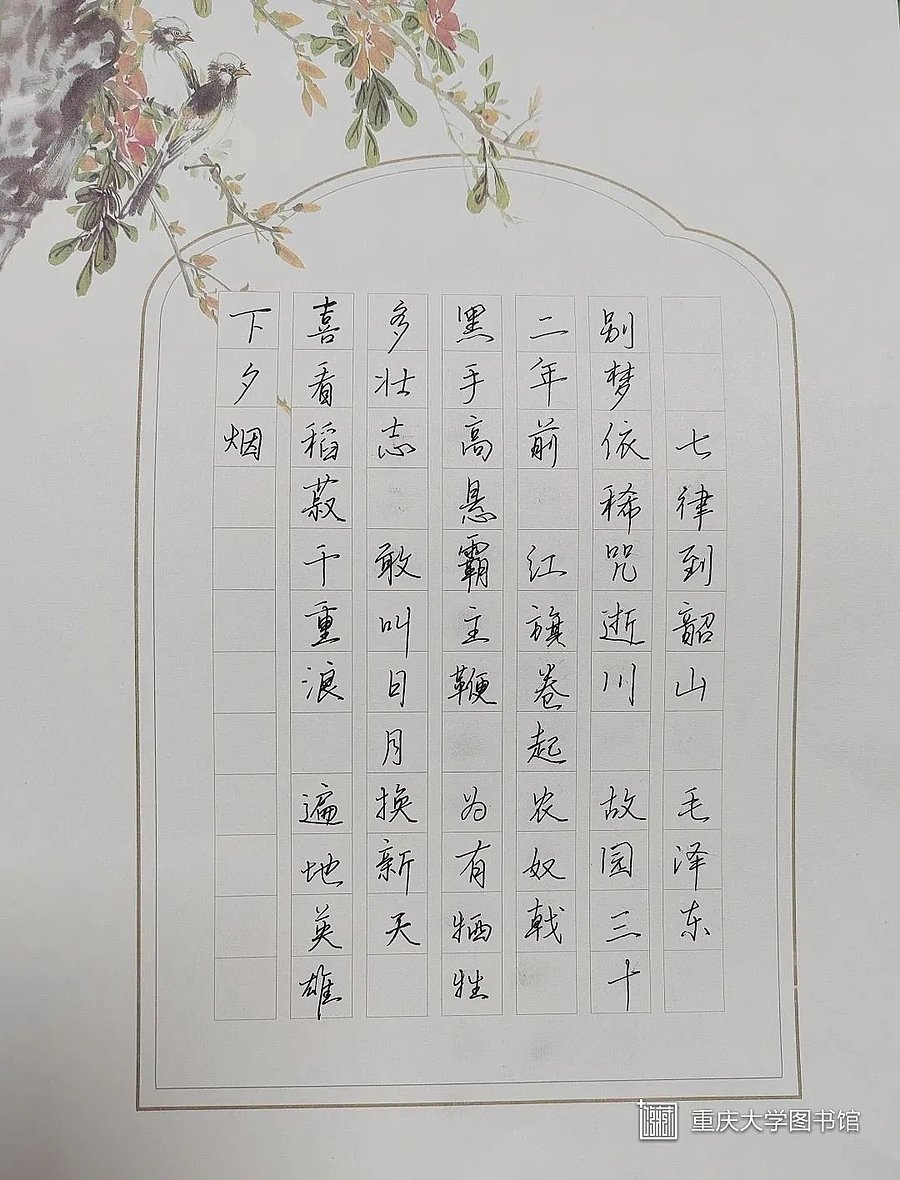 七律到韶山 毛泽东
别梦依稀咒逝川 故园三十
二年前 红旗卷起农奴戟
黑手高悬霸主鞭 为有牺牲
多壮志 敢叫日月换新天
喜看稻菽千重浪 遍地英雄
下夕烟
重庆大学图书馆